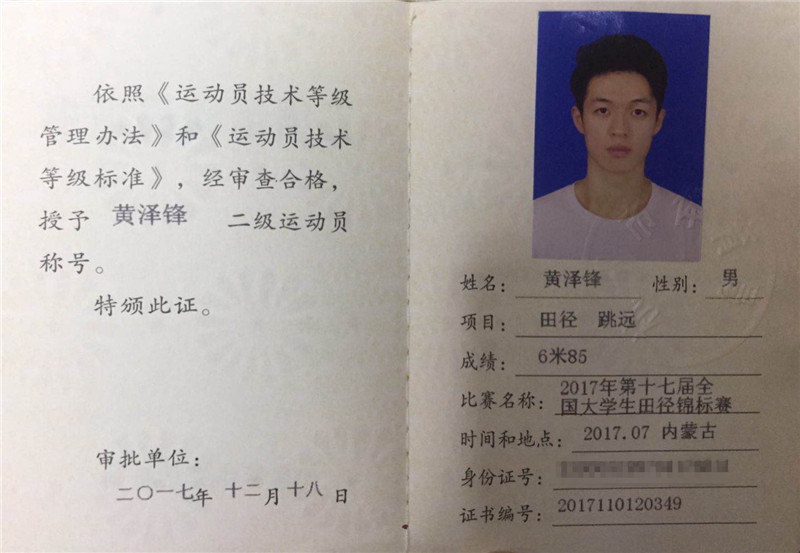 依照《运动员技术等级
管理办法》和《运动员技术
等级标准》，经审查合格，
授予 黄泽锋 二级运动员
称号。
特颁此证。
审批单位：
二〇一七年 十二月 十八 日
姓名： 黄泽锋 性别： 男
项目： 田径 跳远
成绩： 6米85
比赛名称： 2017年第十七届全
国大学生田径锦标赛
时间和地点： 2017.07 内蒙古
身份证号：
证书编号： 2017110120349